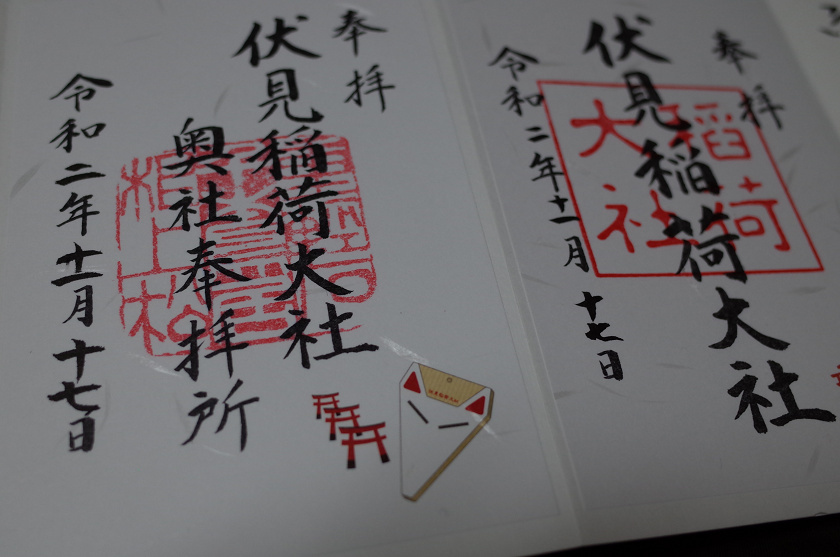 奉拝
伏見稲荷大社
令和二年十一月十七日
稲荷
大社
奉拝
伏見稲荷大社
奥社奉拝所
令和二年十一月十七日